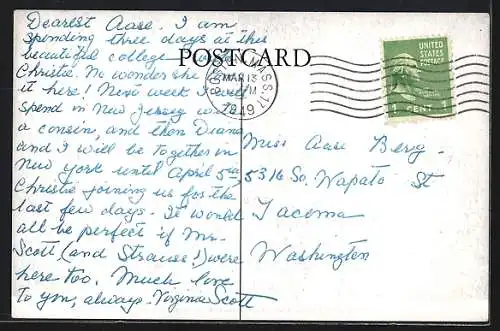 Dearest Aase. I am
spending three days at this
beautiful college with
Christie. No wonder she loves
it here! Next week I will
spend in New Jersey with
a cousin, and then Diana
and I will be together in
New York until April 5th,
Christie joining us for the
last few days. It would
all be perfect if Mr.
Scott (and Strauss!) were
here too. Much love
to you, always. Virginia Scott
POSTCARD
MAR 13
PM
1949
MASS. 17
UNITED
STATES
POSTAGE
1 CENT 1
Miss Aase Berg.
5316 So. Wapato St
Tacoma
Washington